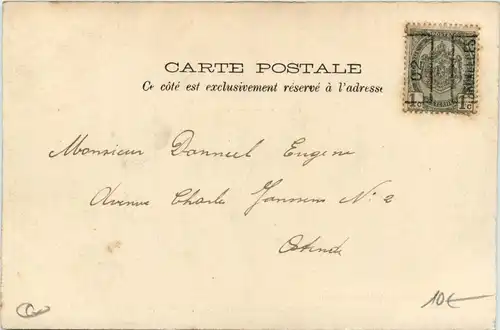 CARTE POSTALE
Ce côté est exclusivement réservé à l'adresse
02 BRUXELLES
1c 1c
Monsieur Danneel Eugene
Avenue Charles Janssens N° 2
Ostende
10€